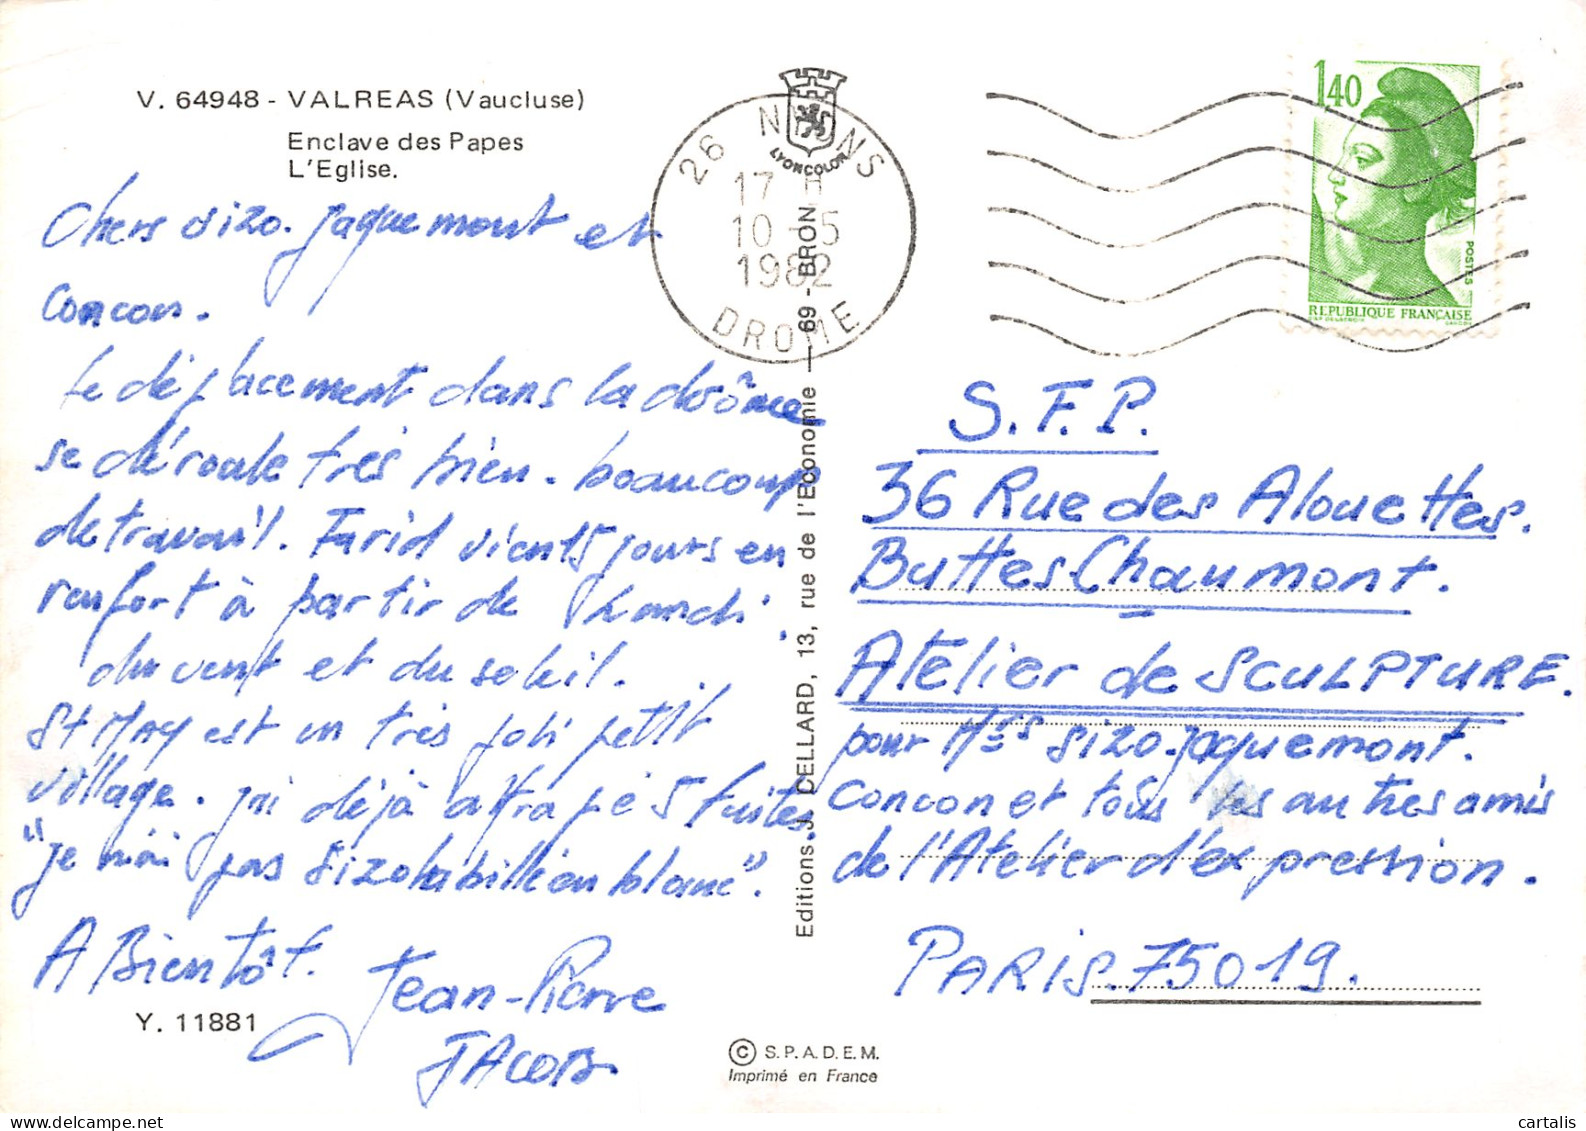 V. 64948 - VALREAS (Vaucluse)
Enclave des Papes
L'Eglise.
Chers Sizo. Jaquemont et
Concon.
Le déplacement dans la drôme
se déroule très bien. beaucoup
de travail. Farid vient 5 jours en
renfort à partir de Lundi.
du vent et du soleil.
St May est un très joli petit
village. j'ai déjà attrapé 5 truites
"je n'ai pas Sizo habillé en blanc".
A Bientôt.
Jean-Pierre
JAcob
Y. 11881
26 NYONS
17 H
10 - 5
1982
DROME
LYONCOLOR
Editions J. CELLARD, 13, rue de l'Economie — 69 - BRON
© S.P.A.D.E.M.
Imprimé en France
1,40
POSTES
REPUBLIQUE FRANÇAISE
S.F.P.
36 Rue des Alouettes.
Buttes-Chaumont.
Atelier de SCULPTURE.
pour Mrs Sizo. Jaquemont.
Concon et tous les autres amis
de l'Atelier d'expression.
PARIS. 75019.
cartalis